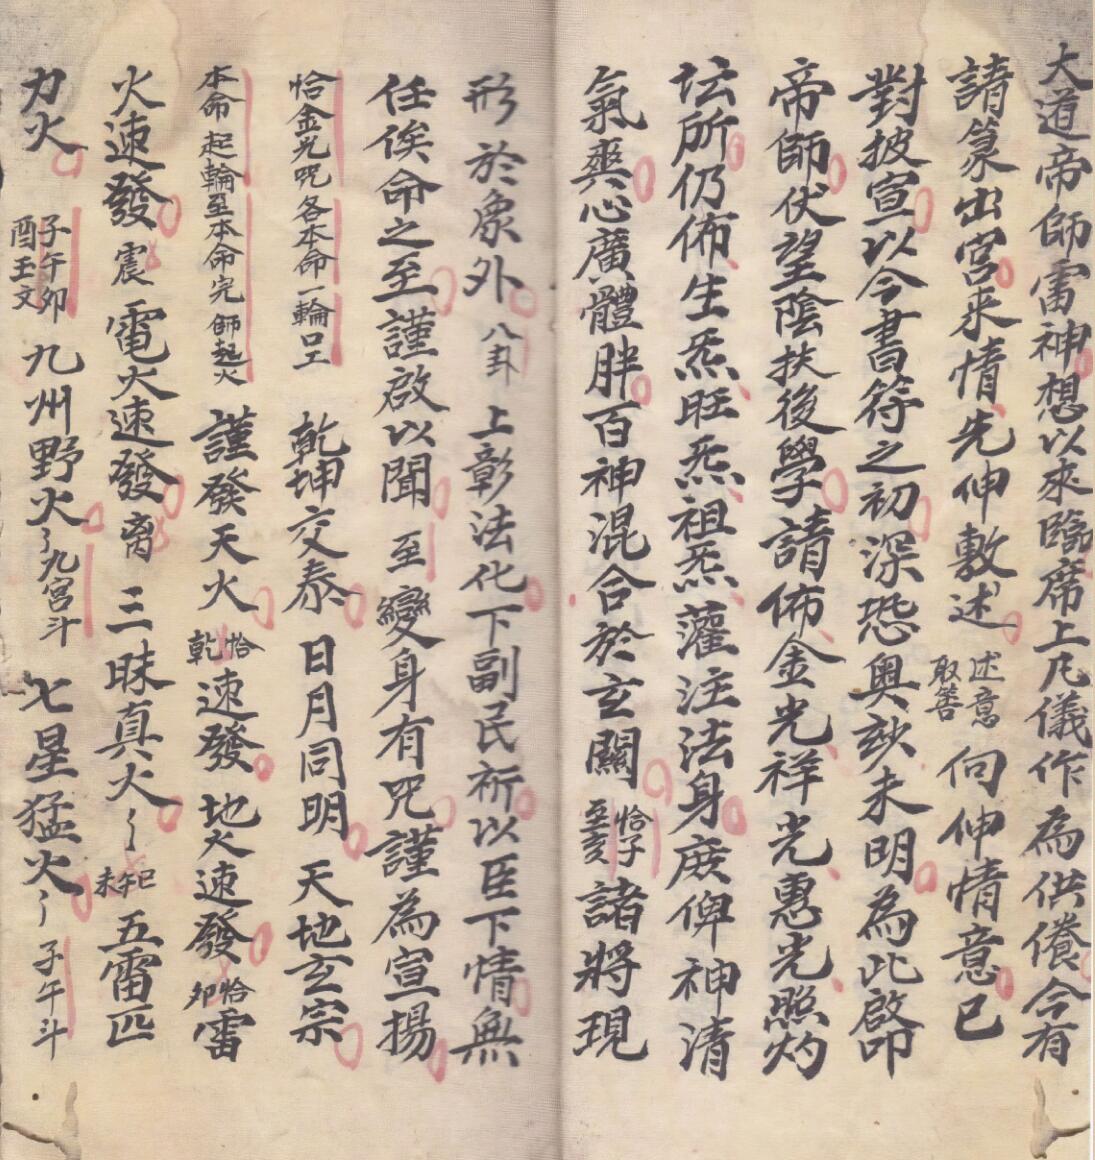 大道帝師雷神想以來臨席上凡儀作為供僎今有
請篆出宮來情先伸敷述述意取善向伸情意已
對披宣以今書符之初深恐奥玅未明為此啟叩
帝師伏望陰扶後學請佈金光祥光惠光照灼
坛所仍佈生炁旺炁祖炁灌注法身庻俾神清
氣爽心廣體胖百神混合於玄關恰子至亥諸將現
形於象外八卦上彰法化下副民祈以臣下情無
任俟命之至謹啟以聞至變身有咒謹為宣揚
恰金光咒各本命一輪口工乾坤交泰日月同明天地玄宗
本命起輪至本命完師起火謹發天火恰乾速發地火速發恰卯雷
火速發震電火速發离三昧真火〻巳午未五雷匹
力火子午卯酉玉文九州野火〻九宮斗七星猛火〻子午斗